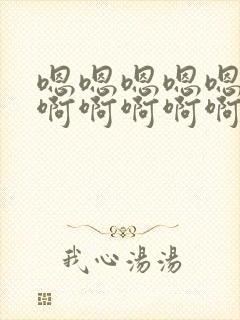 嗯嗯嗯嗯嗯
啊啊啊啊啊
我心湯湯